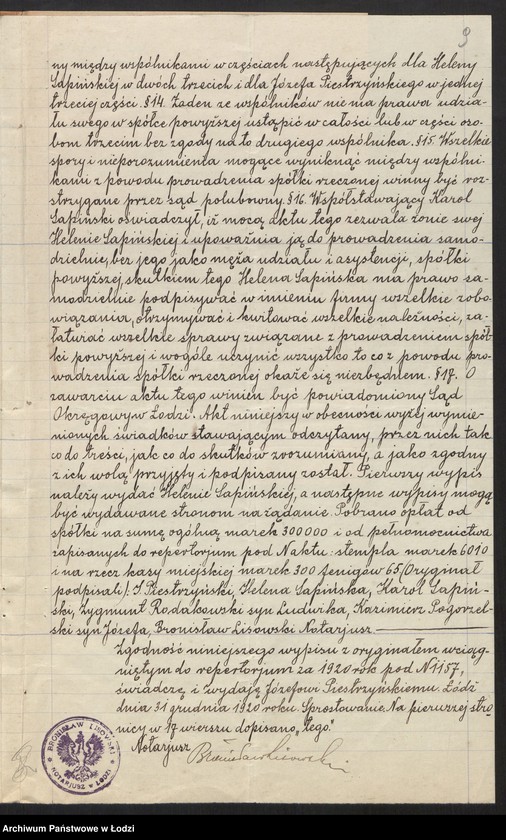 9
ny między wspólnikami w częściach następujących dla Heleny
Sapińskiej w dwóch trzecich i dla Józefa Piestrzyńskiego w jednej
trzeciej części. §14. Żaden ze wspólników nie ma prawa udzia-
łu swego w spółce powyższej ustąpić w całości lub w części oso-
bom trzecim bez zgody na to drugiego wspólnika. §15. Wszelkie
spory i nieporozumienia mogące wyniknąć między wspólni-
kami z powodu prowadzenia spółki rzeczonej winny być roz-
strzygane przez sąd polubowny. §16. Współstawający Karol
Sapiński oświadczył, iż mocą aktu tego zezwala żonie swej
Helenie Sapińskiej i upoważnia ją do prowadzenia samo-
dzielnie, bez jego jako męża udziału i asystencji, spółki
powyższej, skutkiem tego Helena Sapińska ma prawo sa-
modzielnie podpisywać w imieniu firmy wszelkie zobo-
wiązania, otrzymywać i kwitować wszelkie należności, za-
łatwiać wszelkie sprawy związane z prowadzeniem spół-
ki powyższej i wogóle uczynić wszystko to co z powodu pro-
wadzenia spółki rzeczonej okaże się niezbędnem. §17. O
zawarciu aktu tego winien być powiadomiony Sąd
Okręgowy w Łodzi. Akt niniejszy w obecności wyżej wymie-
nionych świadków stawającym odczytany, przez nich tak
co do treści, jak co do skutków zrozumiany, a jako zgodny
z ich wolą przyjęty i podpisany został. Pierwszy wypis
należy wydać Helenie Sapińskiej, a następne wypisy mogą
być wydawane stronom na żądanie. Pobrano opłat od
spółki na sumę ogólną marek 300000 i od pełnomocnictwa
zapisanych do repertorjum pod № aktu: stempla marek 6010
i na rzecz kasy miejskiej marek 300 fenigów 65 (Oryginał
podpisali): J. Piestrzyński, Helena Sapińska, Karol Sapiń-
ski, Zygmunt Rodakowski syn Ludwika, Kazimierz Pogorzel-
ski syn Józefa, Bronisław Lisowski Notarjusz
Zgodność niniejszego wypisu z oryginałem wciąg-
niętym do repertorjum za 1920 rok pod №1157,
świadczę i wydaję Józefowi Piestrzyńskiemu. Łódź
dnia 31 grudnia 1920 roku. Sprostowanie. Na pierwszej stro-
nicy w 17 wierszu dopisano "tego."
Notarjusz Bronisław Lisowski
BRONISŁAW LISOWSKI
NOTARJUSZ w ŁODZI
Archiwum Państwowe w Łodzi